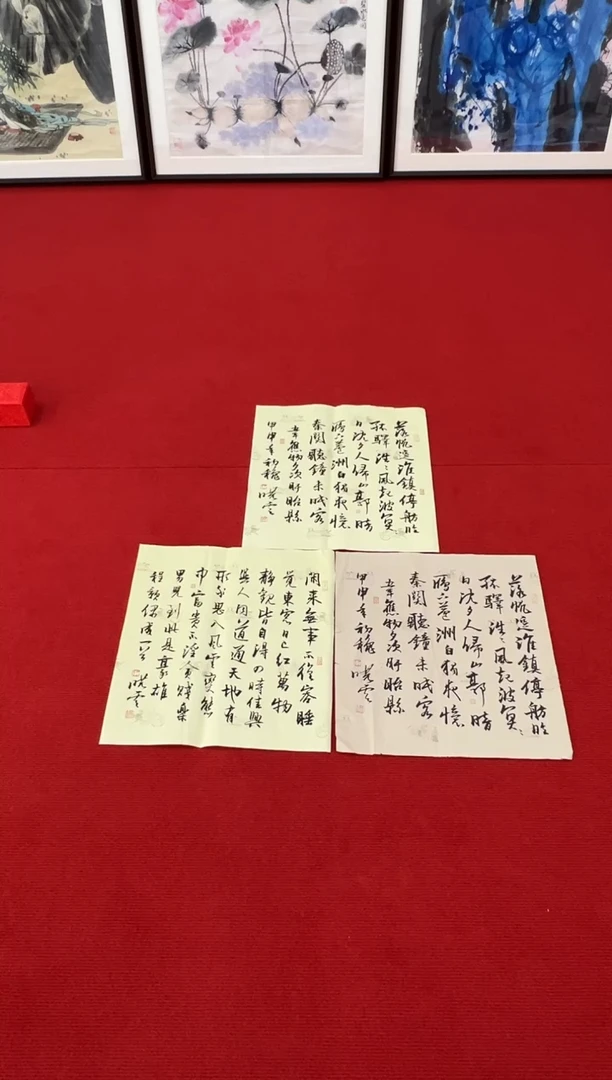 落帆逗淮鎮停舫臨
孤驛浩〻風起波冥〻
日沈夕人歸山郭暗
雁下蘆洲白獨夜憶
秦關聽鐘未眠客
韋應物夕次盱眙縣
甲申年初龝 曉雲
閑來無事不從容睡
覺東窗日已紅萬物
靜觀皆自得四時佳興
與人同道通天地有
形外思入風雲變態
中富貴不淫貧賤樂
男兒到此是豪雄
程顥偶成一首 曉雲
落帆逗淮鎮停舫臨
孤驛浩〻風起波冥〻
日沈夕人歸山郭暗
雁下蘆洲白獨夜憶
秦關聽鐘未眠客
韋應物夕次盱眙縣
甲申年初龝 曉雲